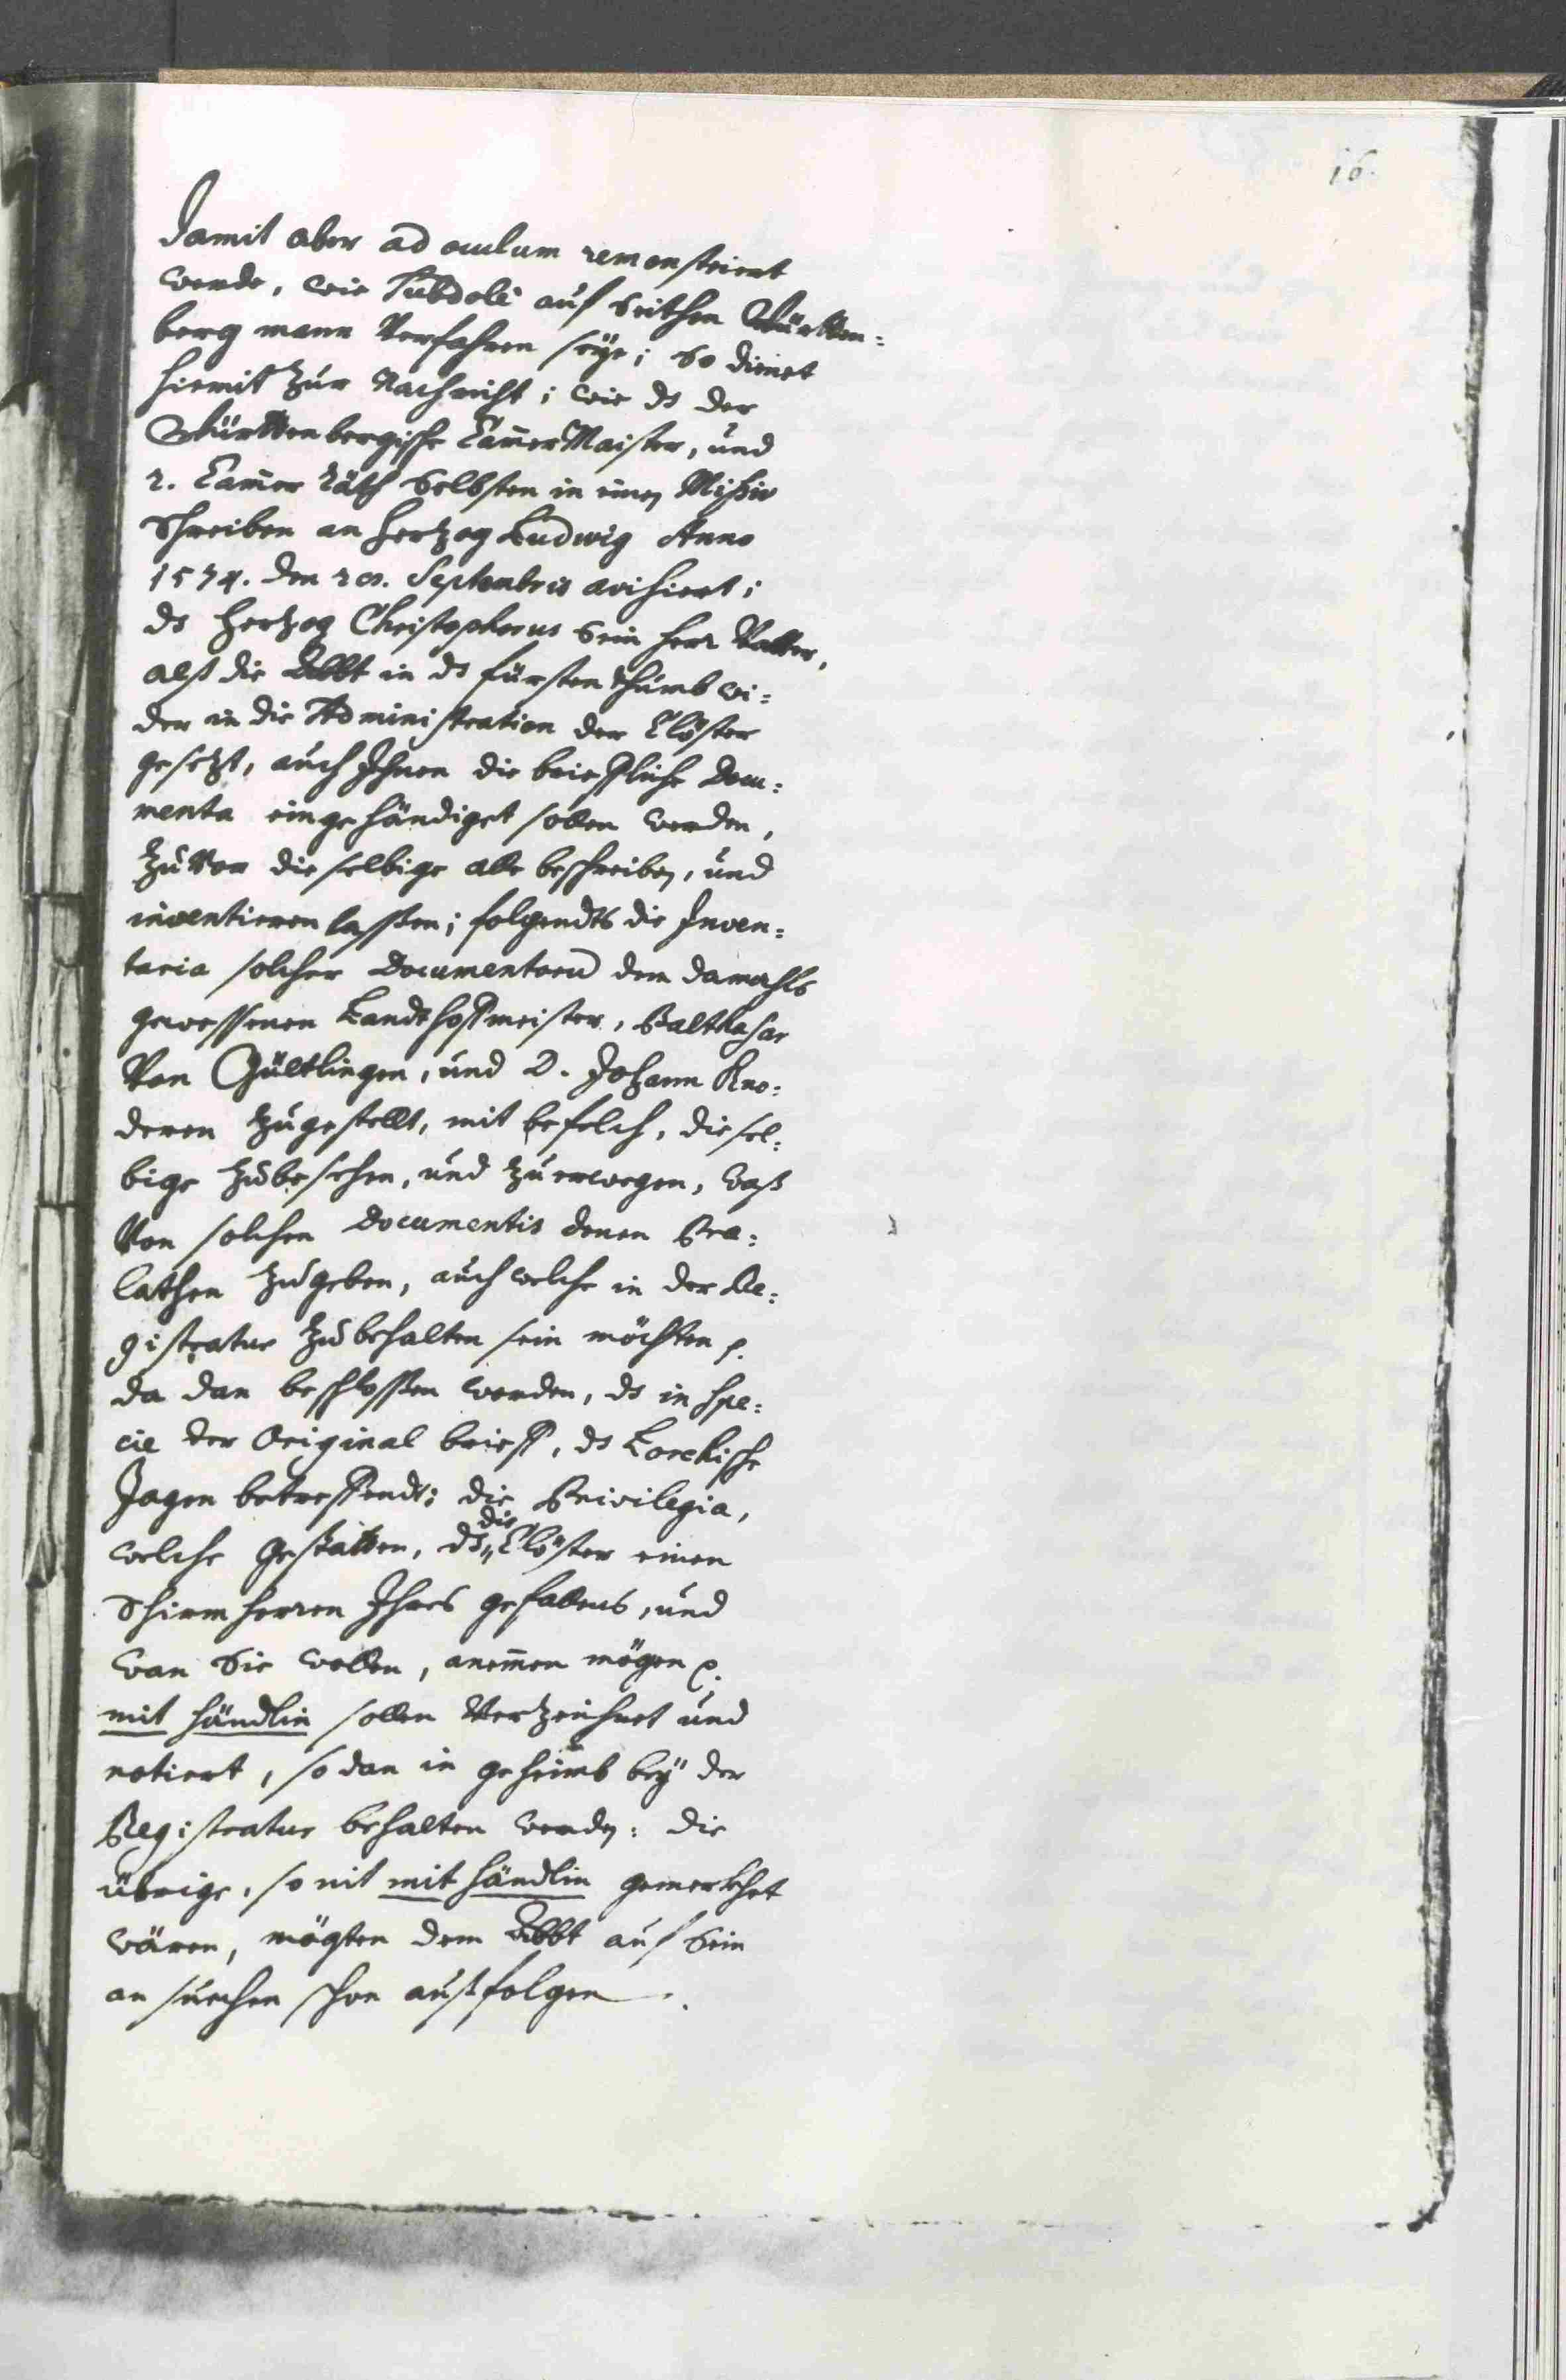 16.
Damit aber ad oculum remonstriert
werde, wie Subdolè auf Seithen Württen=
berg mann Verfahren seÿe; So dienet
hiemit zur Nachricht; wie ds der
Württenbergische Cam̄erMaister, und
2. Cam̄er Räth Selbsten in einen Mißiv
Schreiben an Hertzog Ludwig Anno
1574. den 20. Septembris avisiert;
ds Hertzog Christophorus Sein Herr Vatter,
alß die Äbbt in ds fürstenthumb wi=
der in die Administration der Clöster
gesetzt, auch Ihnen die brieffliche Docu=
menta eingehändiget sollen werden,
zuVor dieselbige alle beschreiben, und
inventieren lassen; folgendts die Inven=
taria solcher Documentorū dem damahls
gewessenen Landthoffmeister, Balthasar
Von Gültlingen, und D. Johann Kno=
deren zugestellt, mit befelch, diesel=
bige zubesehen, und zuerwegen, waß
Von solchen Documentis denen Præ=
lathen zugeben, auch welche in der Re=
gistratur zubehalten sein möchten p.
da dan beschlossen worden, ds in spe=
cie der Original brieff, ds Lorchische
Jagen betreffendt; die Privilegia,
welche gestatten, ds die Clöster einen
Schirmherren Ihres gefallens, und
wan Sie wollen, anem̄en mögen p.
mit händlin sollen Verzeichnet und
notiert, so dan in geheimb beÿ der
Registratur behalten werden: die
übrige, so nit mit händlin gemerkhet
wären, mögten dem Äbbt auf Sein
ansuechen schon außfolgen.